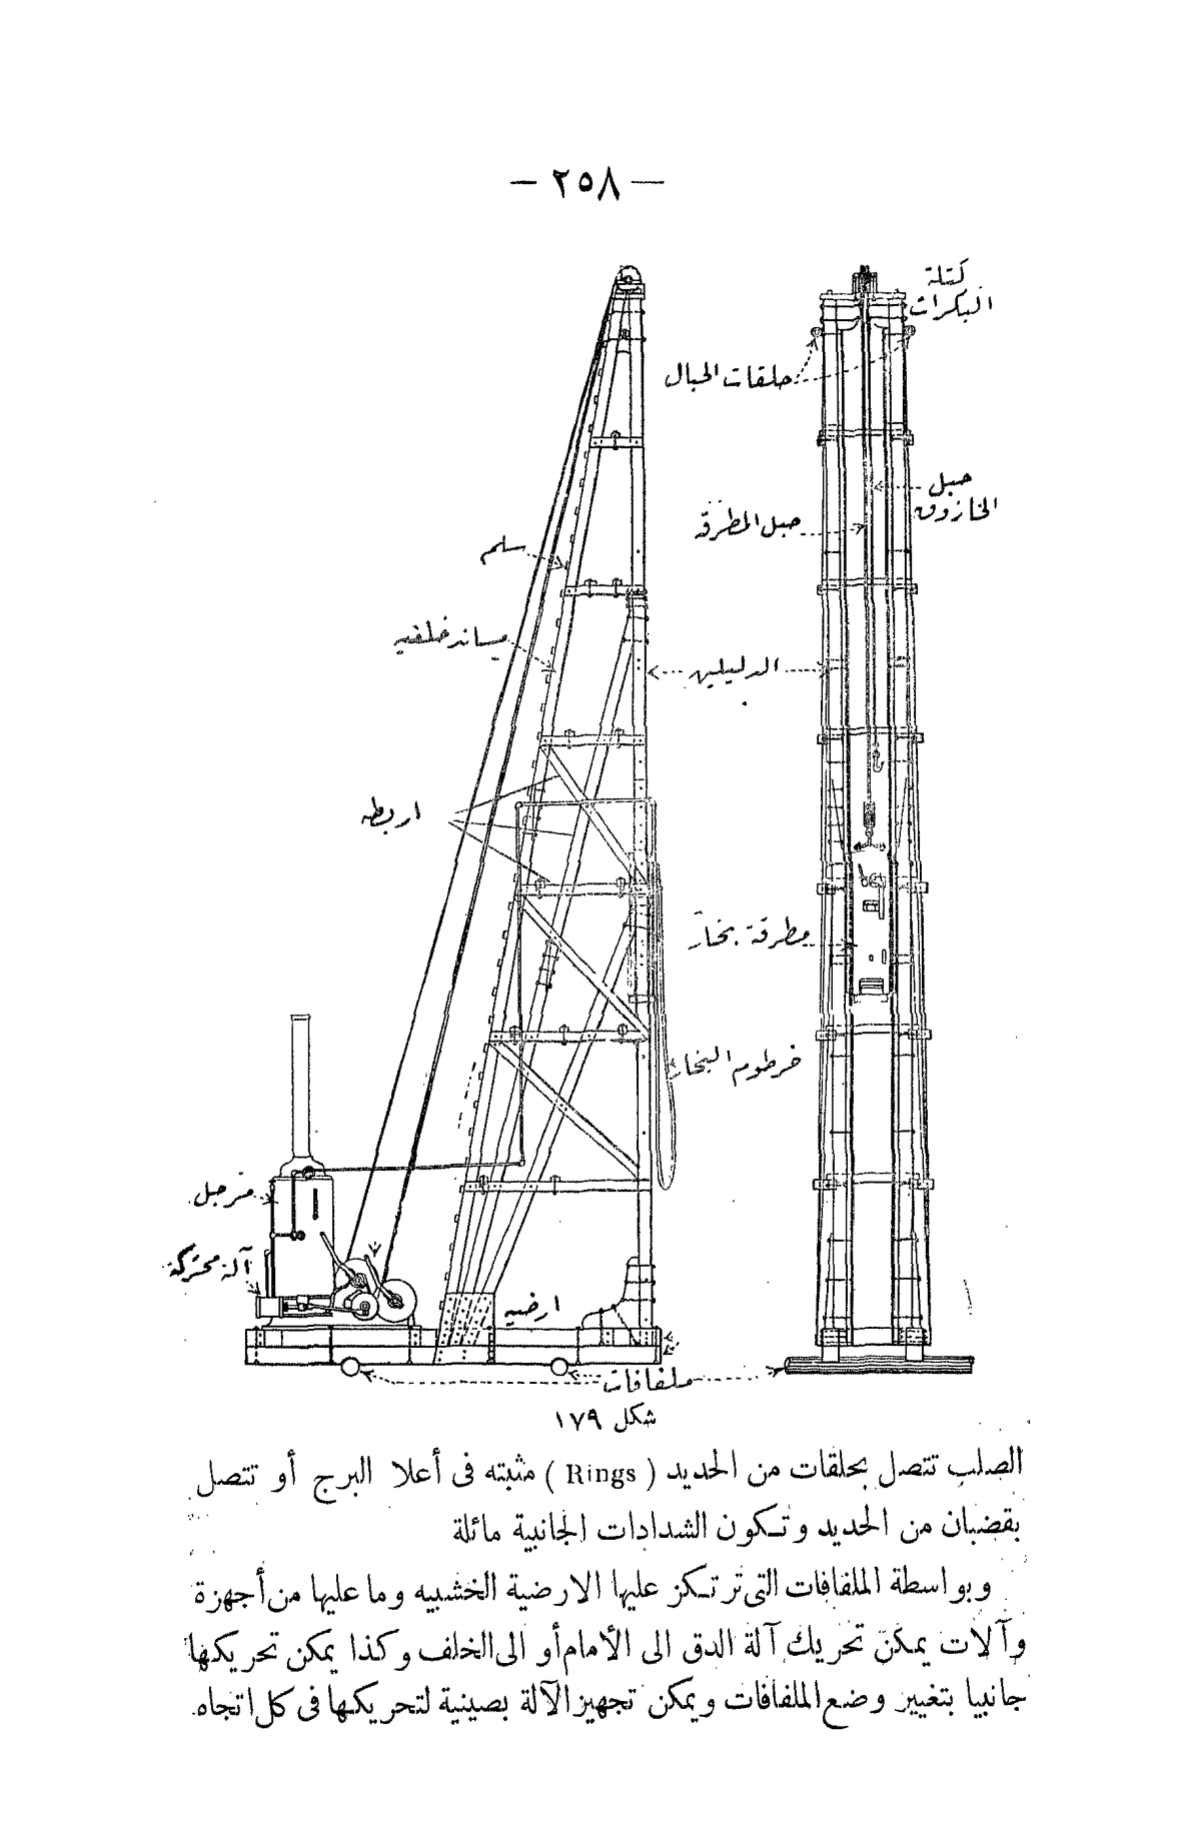 — ٢٥٨ —
كتلة
البكرات
حلقات الحبال
حبل
الخازوق
حبل المطرقه
سلم
مساند خلفيه
الدليلين
اربطه
مطرقة بخار
خرطوم البخار
مرجل
آلة محركة
ارضيه
ملفافات
شكل ١٧٩
الصلب تتصل بحلقات من الحديد ( Rings ) مثبته فى أعلا البرج أو تتصل
بقضبان من الحديد وتكون الشدادات الجانبية مائلة
وبواسطة الملفافات التى ترتكز عليها الارضية الخشبيه وما عليها من أجهزة
وآلات يمكن تحريك آلة الدق الى الأمام أو الى الخلف وكذا يمكن تحريكها
جانبيا بتغيير وضع الملفافات ويمكن تجهيز الآلة بصينية لتحريكها فى كل اتجاه.